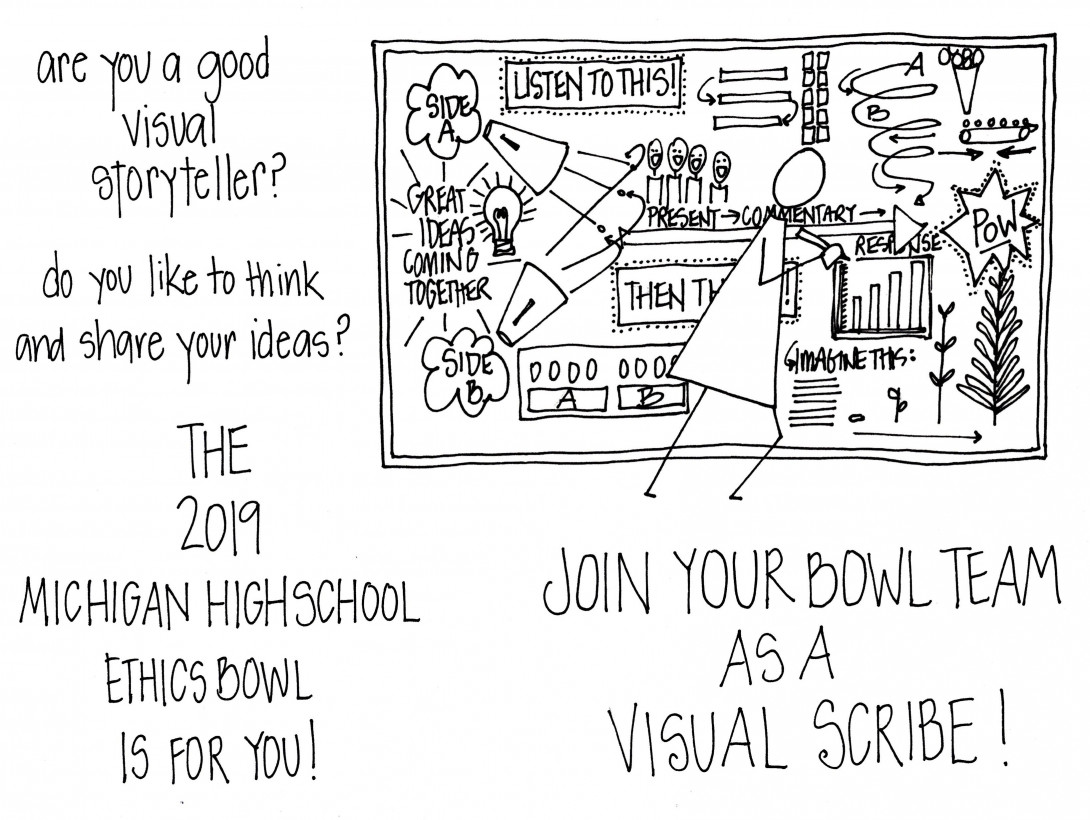 are you a good
visual
storyteller?
do you like to think
and share your ideas?
THE
2019
MICHIGAN HIGHSCHOOL
ETHICS BOWL
IS FOR YOU!
SIDE
A
LISTEN TO THIS!
A
B
GREAT
IDEAS
COMING
TOGETHER
PRESENT → COMMENTARY →
RESPONSE
POW
THEN TH
!
SIDE
B
A
B
IMAGINE THIS:
%
JOIN YOUR BOWL TEAM
AS A
VISUAL SCRIBE!